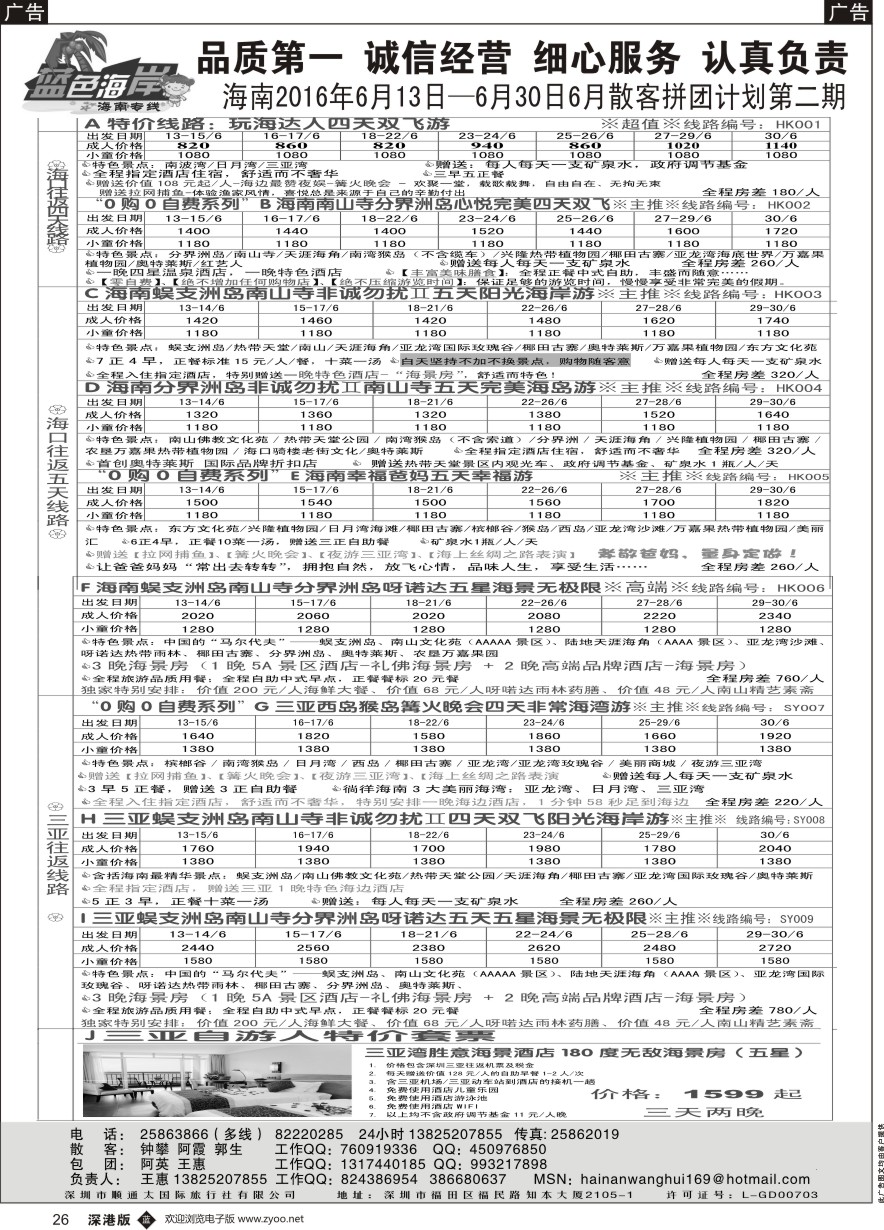 广告
广告
蓝色海岸
海南专线
品质第一 诚信经营 细心服务 认真负责
海南2016年6月13日—6月30日6月散客拼团计划第二期
海口往返四天线路
A 特价线路：玩海达人四天双飞游 ※超值※线路编号：HK001
出发日期 13-15/6 16-17/6 18-22/6 23-24/6 25-26/6 27-29/6 30/6
成人价格 820 860 820 940 860 1020 1140
小童价格 1080 1080 1080 1080 1080 1080 1080
特色景点：南波湾/日月湾/三亚湾 赠送：每人每天一支矿泉水，政府调节基金
全程指定酒店住宿，舒适而不奢华 三早五正餐
赠送价值 108 元起/人-海边最赞夜娱-篝火晚会 - 欢聚一堂，载歌载舞，自由自在、无拘无束
赠送拉网捕鱼-体验渔家风情，喜悦总是来源于自己的辛勤付出 全程房差 180/人
“0 购 0 自费系列”B 海南南山寺分界洲岛心悦完美四天双飞※主推※线路编号：HK002
出发日期 13-15/6 16-17/6 18-22/6 23-24/6 25-26/6 27-29/6 30/6
成人价格 1400 1440 1400 1520 1440 1600 1720
小童价格 1180 1180 1180 1180 1180 1180 1180
特色景点：分界洲岛/南山寺/天涯海角/南湾猴岛（不含缆车）/兴隆热带植物园/椰田古寨/亚龙湾海底世界/万嘉果
植物园/奥特莱斯/红艺人 赠送每人每天一支矿泉水 全程房差 260/人
一晚四星温泉酒店，一晚特色酒店 【丰富美味膳食】：全程正餐中式自助，丰盛而随意……
【零自费】、【绝不增加任何购物店】、【绝不压缩游览时间】：保证足够的游览时间，慢慢享受非常完美的假期。
海口往返五天线路
C 海南蜈支洲岛南山寺非诚勿扰Ⅱ五天阳光海岸游※主推※线路编号：HK003
出发日期 13-14/6 15-17/6 18-21/6 22-26/6 27-28/6 29-30/6
成人价格 1420 1460 1420 1480 1620 1740
小童价格 1180 1180 1180 1180 1180 1180
特色景点：蜈支洲岛/热带天堂/南山/天涯海角/亚龙湾国际玫瑰谷/椰田古寨/奥特莱斯/万嘉果植物园/东方文化苑
7 正 4 早，正餐标准 15 元/人/餐，十菜一汤 白天坚持不加不换景点，购物随客意 赠送每人每天一支矿泉水
全程入住指定酒店，特别赠送一晚特色酒店-“海景房”，舒适而特色！ 全程房差 320/人
D 海南分界洲岛非诚勿扰Ⅱ南山寺五天完美海岛游※主推※线路编号：HK004
出发日期 13-14/6 15-17/6 18-21/6 22-26/6 27-28/6 29-30/6
成人价格 1320 1360 1320 1380 1520 1640
小童价格 1180 1180 1180 1180 1180 1180
特色景点：南山佛教文化苑 / 热带天堂公园 / 南湾猴岛（不含索道）/分界洲 / 天涯海角 / 兴隆植物园 / 椰田古寨 /
农垦万嘉果热带植物园 / 海口骑楼老街文化/奥特莱斯 全程指定酒店住宿，舒适而不奢华 全程房差 320/人
首创奥特莱斯 国际品牌折扣店 赠送热带天堂景区内观光车、政府调节基金、矿泉水 1 瓶/人/天
“0 购 0 自费系列”E 海南幸福爸妈五天幸福游 ※主推※线路编号：HK005
出发日期 13-14/6 15-17/6 18-21/6 22-26/6 27-28/6 29-30/6
成人价格 1500 1540 1500 1560 1700 1820
小童价格 1180 1180 1180 1180 1180 1180
特色景点：东方文化苑/兴隆植物园/日月湾海滩/椰田古寨/槟榔谷/猴岛/西岛/亚龙湾沙滩/万嘉果热带植物园/美丽
汇 6正4早，正餐10菜一汤，赠送三正自助餐 矿泉水1瓶/人/天
赠送【拉网捕鱼】、【篝火晚会】、【夜游三亚湾】、【海上丝绸之路表演】 孝敬爸妈、量身定做！
让爸爸妈妈“常出去转转”，拥抱自然，放飞心情，品味人生，享受生活…… 全程房差 260/人
F 海南蜈支洲岛南山寺分界洲岛呀诺达五星海景无极限※高端※线路编号：HK006
出发日期 13-14/6 15-17/6 18-21/6 22-26/6 27-28/6 29-30/6
成人价格 2020 2060 2020 2080 2220 2340
小童价格 1280 1280 1280 1280 1280 1280
特色景点：中国的“马尔代夫”——蜈支洲岛、南山文化苑（AAAAA 景区）、陆地天涯海角（AAAA 景区）、亚龙湾沙滩、
呀诺达热带雨林、椰田古寨、分界洲岛、奥特莱斯、农垦万嘉果园
3 晚海景房（1 晚 5A 景区酒店-礼佛海景房 + 2 晚高端品牌酒店-海景房）
全程旅游品质用餐：全程自助中式早点，正餐餐标 20 元餐 全程房差 760/人
独家特别安排：价值 200 元/人海鲜大餐、价值 68 元/人呀喏达雨林药膳、价值 48 元/人南山精艺素斋
三亚往返线路
“0 购 0 自费系列”G 三亚西岛猴岛篝火晚会四天非常海湾游※主推※线路编号：SY007
出发日期 13-15/6 16-17/6 18-22/6 23-24/6 25-29/6 30/6
成人价格 1640 1820 1580 1860 1660 1920
小童价格 1380 1380 1380 1380 1380 1380
特色景点：槟榔谷 / 南湾猴岛 / 日月湾 / 西岛 / 椰田古寨 / 亚龙湾/亚龙湾玫瑰谷 / 美丽商城 / 夜游三亚湾
赠送【拉网捕鱼】、【篝火晚会】、【夜游三亚湾】、【海上丝绸之路表演 赠送每人每天一支矿泉水
3 早 5 正餐，赠送 3 正自助餐 徜徉海南 3 大美丽海湾：亚龙湾、日月湾、三亚湾
全程入住指定酒店，舒适而不奢华，特别安排一晚海边酒店，1 分钟 58 秒足到海边 全程房差 220/人
H 三亚蜈支洲岛南山寺非诚勿扰Ⅱ四天双飞阳光海岸游※主推※ 线路编号：SY008
出发日期 13-15/6 16-17/6 18-22/6 23-24/6 25-29/6 30/6
成人价格 1760 1940 1700 1980 1780 2040
小童价格 1380 1380 1380 1380 1380 1380
含括海南最精华景点：蜈支洲岛/南山佛教文化苑/热带天堂公园/天涯海角/椰田古寨/亚龙湾国际玫瑰谷/奥特莱斯
全程指定酒店，赠送三亚 1 晚特色海边酒店
5 正 3 早，正餐十菜一汤 赠送：每人每天一支矿泉水 全程房差 260/人
I 三亚蜈支洲岛南山寺分界洲岛呀诺达五天五星海景无极限※主推※线路编号：SY009
出发日期 13-14/6 15-17/6 18-21/6 22-24/6 25-28/6 29-30/6
成人价格 2440 2560 2380 2620 2480 2720
小童价格 1580 1580 1580 1580 1580 1580
特色景点：中国的“马尔代夫”——蜈支洲岛、南山文化苑（AAAAA 景区）、陆地天涯海角（AAAA 景区）、亚龙湾国际
玫瑰谷、呀诺达热带雨林、椰田古寨、分界洲岛、奥特莱斯、
3 晚海景房（1 晚 5A 景区酒店-礼佛海景房 + 2 晚高端品牌酒店-海景房）
全程旅游品质用餐：全程自助中式早点，正餐餐标 20 元餐 全程房差 780/人
独家特别安排：价值 200 元/人海鲜大餐、价值 68 元/人呀喏达雨林药膳、价值 48 元/人南山精艺素斋
J 三亚自游人特价套票
三亚湾胜意海景酒店 180 度无敌海景房（五星）
1. 价格包含深圳三亚往返机票及税金
2. 每天赠送价值 128 元/人的自助早餐 1-2 人/次
3. 含三亚机场/三亚动车站到酒店的接机一趟
4. 免费使用酒店儿童乐园
5. 免费使用酒店游泳池
6. 免费使用酒店 WIFI
7. 以上均不含政府调节基金 11 元/人晚
价格：1599 起
三天两晚
电 话： 25863866（多线） 82220285 24小时 13825207855 传真: 25862019
散 客： 钟攀 阿霞 郭生 工作QQ：760919336 QQ：450976850
包 团： 阿英 王惠 工作QQ：1317440185 QQ：993217898
负责人： 王惠 13825207855 工作QQ：824386954 386680637 MSN：hainanwanghui169@hotmail.com
深圳市顺通太国际旅行社有限公司 地址：深圳市福田区福民路知本大厦2105-1 许可证号：L-GD00703
此广告图文均由客户提供
26 深港版 蓝 欢迎浏览电子版 www.zyoo.net